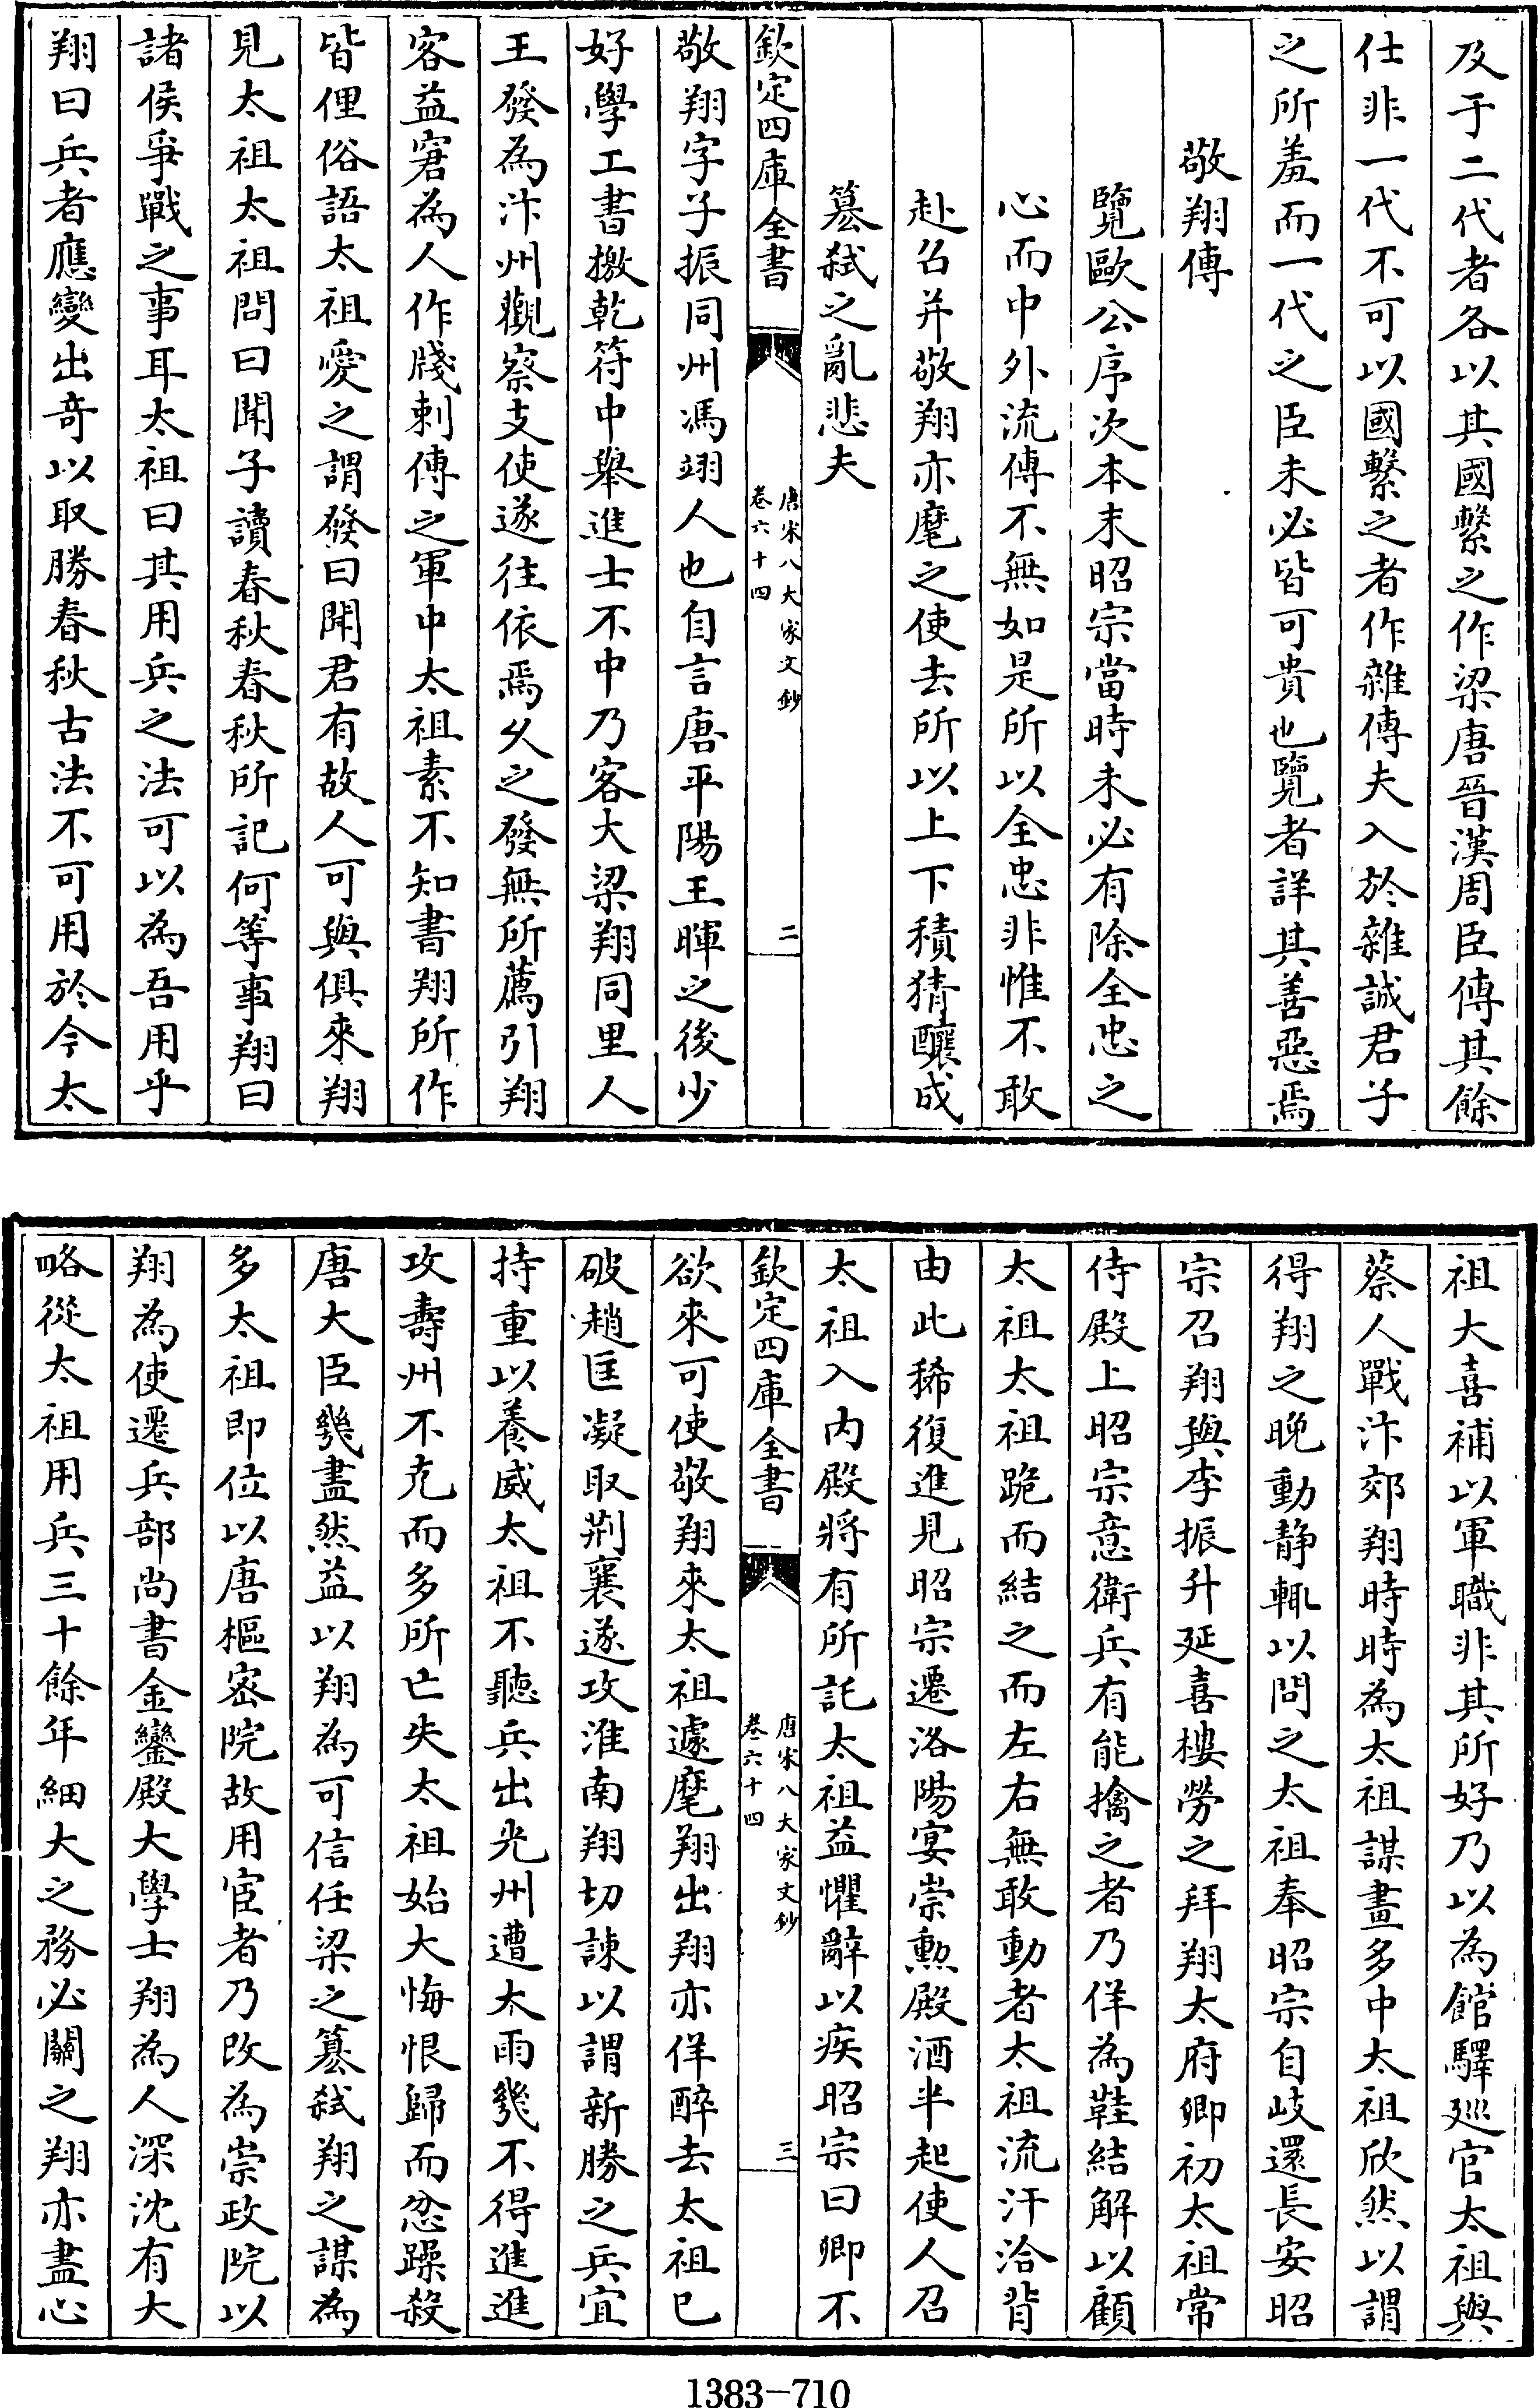 及于二代者各以其國繫之作梁唐晉漢周臣傳其餘
仕非一代不可以國繫之者作雜傳夫入於雜誠君子
之所羞而一代之臣未必皆可貴也覽者詳其善惡焉
敬翔傳
覽歐公序次本末昭宗當時未必有除全忠之
心而中外流傳不無如是所以全忠非惟不敢
赴召并敬翔亦麾之使去所以上下積猜釀成
簒弑之亂悲夫
欽定四庫全書
唐宋八大家文鈔
卷六十四
二
敬翔字子振同州馮翊人也自言唐平陽王暉之後少
好學工書檄乾符中舉進士不中乃客大梁翔同里人
王發為汴州觀察支使遂往依焉乆之發無所薦引翔
客益窘為人作牋刺傳之軍中太祖素不知書翔所作
皆俚俗語太祖愛之謂發曰聞君有故人可與俱來翔
見太祖太祖問曰聞子讀春秋春秋所記何等事翔曰
諸侯爭戰之事耳太祖曰其用兵之法可以為吾用乎
翔曰兵者應變出奇以取勝春秋古法不可用於今太
祖大喜補以軍職非其所好乃以為館驛廵官太祖與
蔡人戰汴郊翔時時為太祖謀畫多中太祖欣然以謂
得翔之晚動静輒以問之太祖奉昭宗自岐還長安昭
宗召翔與李振升延喜樓勞之拜翔太府卿初太祖常
侍殿上昭宗意衛兵有能擒之者乃佯為鞋結解以顧
太祖太祖跪而結之而左右無敢動者太祖流汗洽背
由此稀復進見昭宗遷洛陽宴崇勲殿酒半起使人召
太祖入内殿將有所託太祖益懼辭以疾昭宗曰卿不
欽定四庫全書
唐宋八大家文鈔
卷六十四
三
欲來可使敬翔來太祖遽麾翔出翔亦佯醉去太祖已
破趙匡凝取荆襄遂攻淮南翔切諫以謂新勝之兵宜
持重以養威太祖不聽兵出光州遭大雨幾不得進進
攻壽州不克而多所亡失太祖始大悔恨歸而忿躁殺
唐大臣幾盡然益以翔為可信任梁之簒弑翔之謀為
多太祖即位以唐樞密院故用宦者乃改為崇政院以
翔為使遷兵部尚書金鑾殿大學士翔為人深沈有大
略從太祖用兵三十餘年細大之務必關之翔亦盡心
1383—710